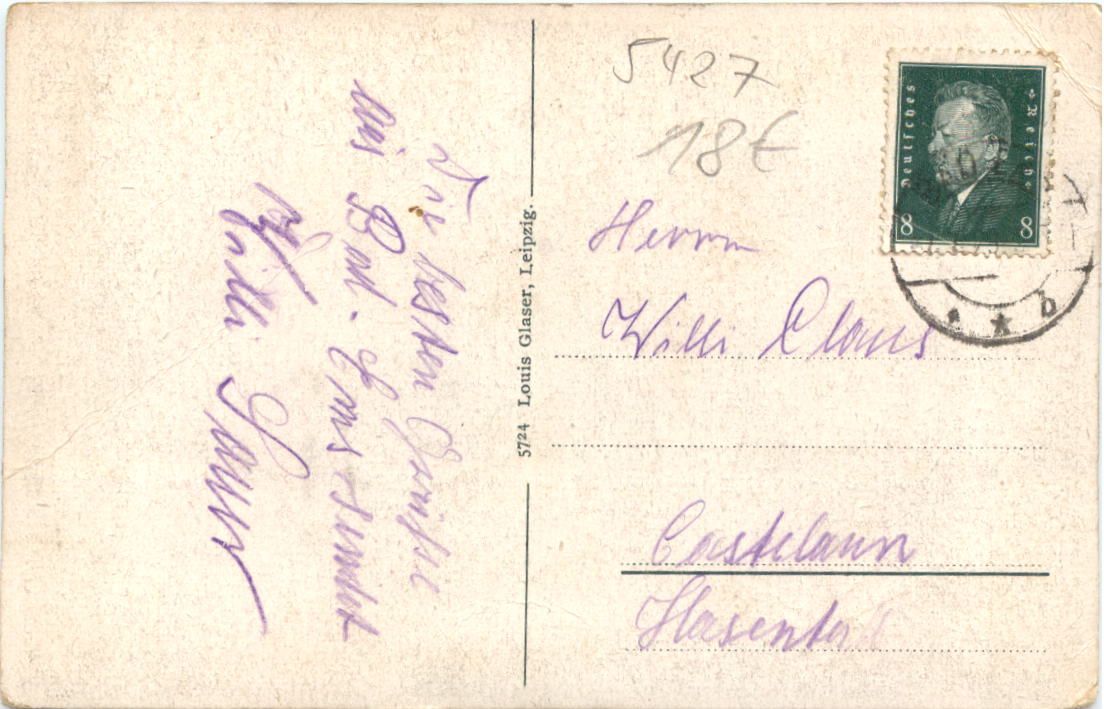 Die besten Grüße
aus Bad. Ems sendet
Willi
5724 Louis Glaser, Leipzig.
5427
18€
Deutsches Reich
8 8
b
Herrn
Willi Claus
Castelaun
Hasental